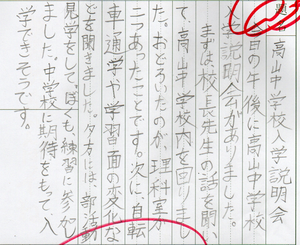 高山中学校入学説明会
今日の午後に高山中学校
入学説明会がありました。
まずは、校長先生の話を聞い
て、高山中学校内を回りまし
た。おどろいたのが、理科室が
二つあったことです。次に、自転
車通学や学習面の変化な
どを聞きました。夕方には、部活動
見学をして、ぼくも、練習に参加し
ました。中学校に期待をもって、入
学できそうです。